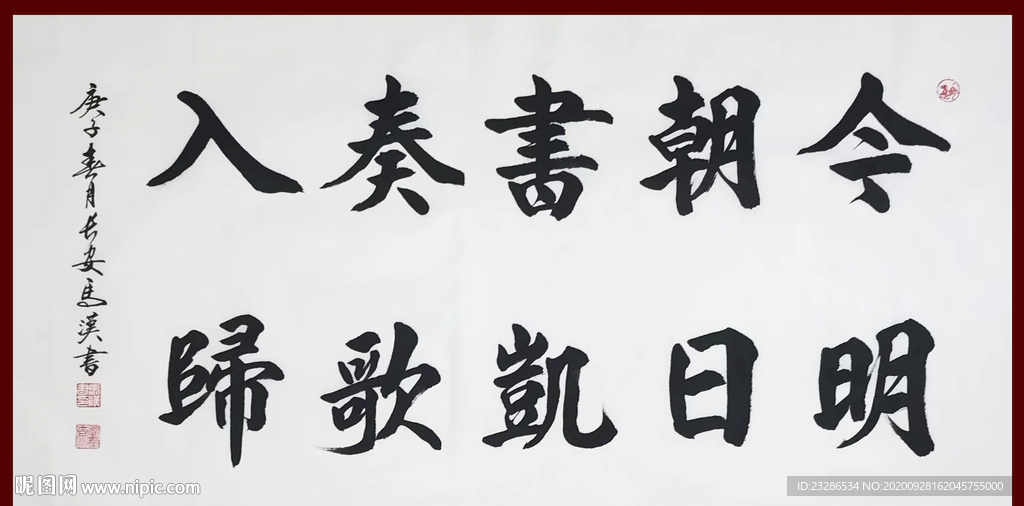 今朝書奏入
明日凱歌歸
庚子春月长安馬漢書
昵图网 www.nipic.com
ID:23286534 NO:20200928162045755000